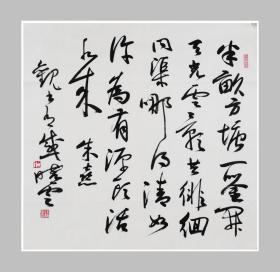 半畝方塘一鑒開
天光雲影共徘徊
問渠哪得清如
許為有源頭活
水來 朱熹
觀書有感 曉雲